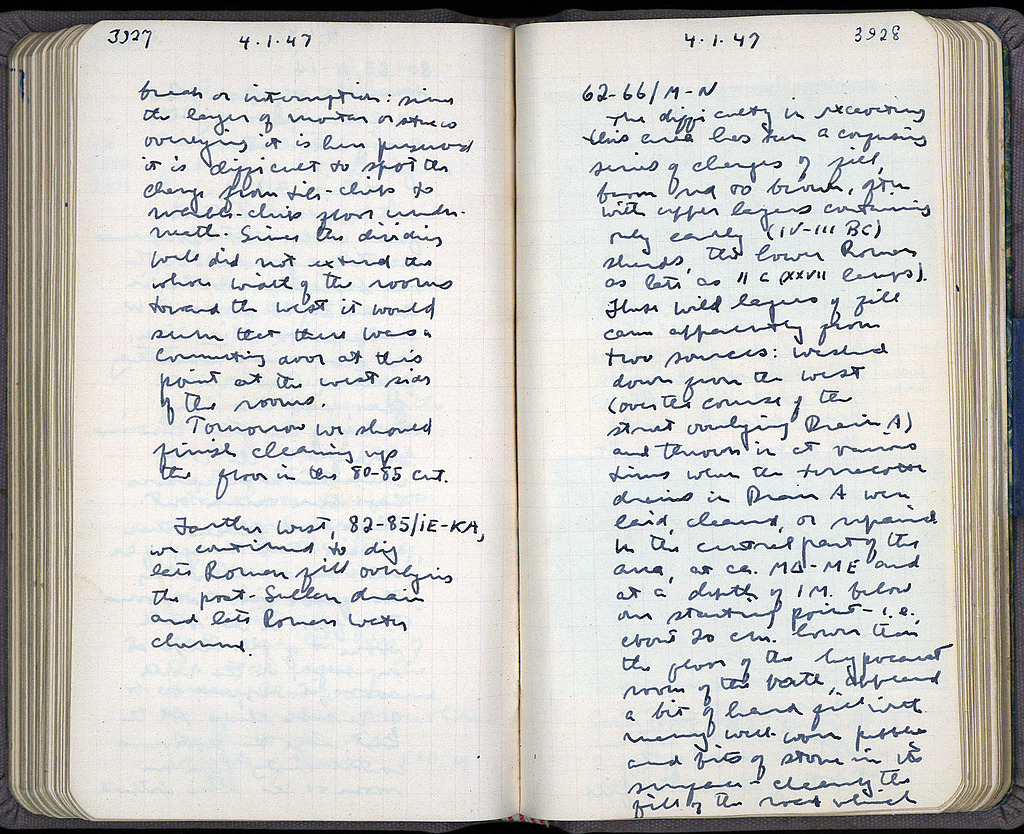 3927
4·1·47
break or interruption: since
the layer of mortar or stucco
overlying it is here preserved
it is difficult to spot the
change from tile-chips to
marble-chips floor under-
neath. Since the dividing
wall did not extend the
whole width of the rooms
toward the west it would
seem that there was a
connecting door at this
point at the west side
of the rooms.
Tomorrow we should
finish cleaning up
the floor in this 80-85 cut.
Farther west, 82-85/ΙΕ-ΚΑ,
we continued to dig
late Roman fill overlying
the post-Sullan drain
and late Roman water
channel.
4·1·47
3928
62-66/Μ-Ν
The difficulty in excavating
this area has been a confusing
series of changes of fill,
from red to brown, often
with upper layers containing
only early (IV-III BC)
sherds, the lower Roman
as late as II c (XXVII lamps).
These wild layers of fill
came apparently from
two sources: washed
down from the west
(over the course of the
street overlying Drain A)
and thrown in at various
times when the terracotta
drains in Drain A were
laid, cleaned, or repaired
In the central part of the
area, at ca. ΜΔ-ΜΕ and
at a depth of 1 M. below
our starting point - i.e.
about 20 cm. lower than
the floor of the hypocaust
room of the bath, appeared
a bit of hard fill with
many well-worn pebbles
and bits of stone in its
surface - clearly the
fill of the road which